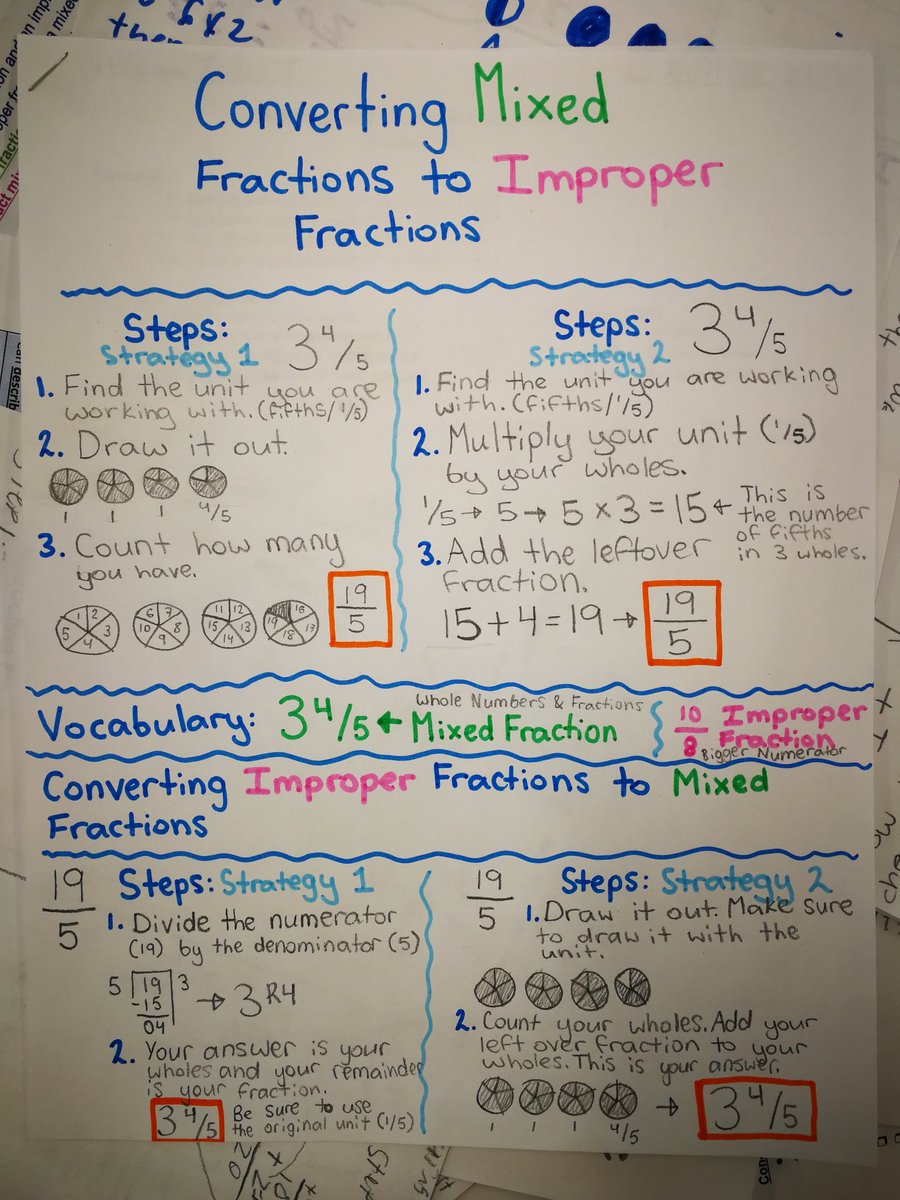 Converting Mixed
Fractions to Improper
Fractions
Steps:
Strategy 1
3 4/5
1. Find the unit you are
working with. (fifths/1/5)
2. Draw it out.
1 1 1 4/5
3. Count how many
you have.
1 2 3 4 5
6 7 8 9 10
11 12 13 14 15
16 17 18 19
19
5
Steps:
Strategy 2
3 4/5
1. Find the unit you are working
with. (fifths/1/5)
2. Multiply your unit (1/5)
by your wholes.
1/5 → 5 → 5 x 3 = 15 ← This is
the number
of fifths
in 3 wholes.
3. Add the leftover
fraction.
15 + 4 = 19 →
19
5
Vocabulary: 3 4/5 ← Mixed Fraction
Whole Numbers & Fractions
10
8
Improper
Fraction
Bigger Numerator
Converting Improper Fractions to Mixed
Fractions
19
5
Steps: Strategy 1
1. Divide the numerator
(19) by the denominator (5)
5 19 3 → 3 R4
-15
04
2. Your answer is your
wholes and your remainder
is your fraction.
3 4/5
Be sure to use
the original unit (1/5)
19
5
Steps: Strategy 2
1. Draw it out. Make sure
to draw it with the
unit.
2. Count your wholes. Add your
left over fraction to your
wholes. This is your answer.
1 1 1 4/5
→ 3 4/5